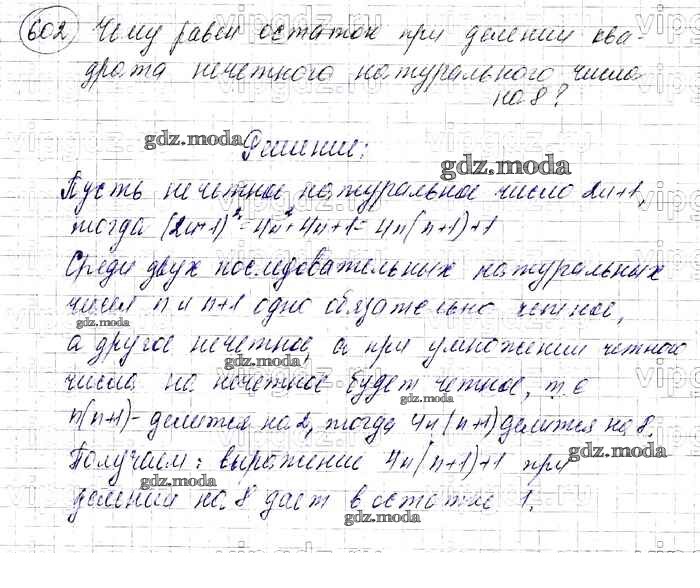 602 Чему равен остаток при делении ква-
драта нечетного натурального числа
на 8?
Решение:
Пусть нечетное натуральное число 2n+1,
тогда (2n+1)²=4n²+4n+1=4n(n+1)+1
Среди двух последовательных натуральных
чисел n и n+1 одно обязательно четное,
а другое нечетное, а при умножении четного
числа на нечетное будет четное, т.е
n(n+1)- делится на 2, тогда 4n(n+1) делится на 8.
Получаем: выражение 4n(n+1)+1 при
делении на 8 дает в остатке 1.
gdz.moda
gdz.moda
gdz.moda
gdz.moda
gdz.moda
gdz.moda
gdz.moda
gdz.moda
gdz.moda